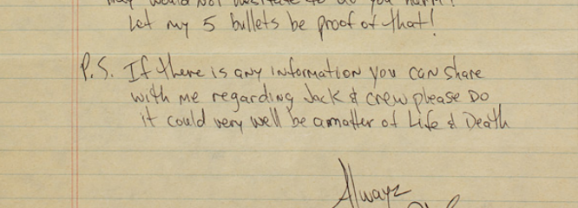 they would not hesitate to do you harm!
Let my 5 bullets be proof of that!
P.S. If there is any information you can share
with me regarding Jack & crew please Do
it could very well be a matter of Life & Death
Alwayz